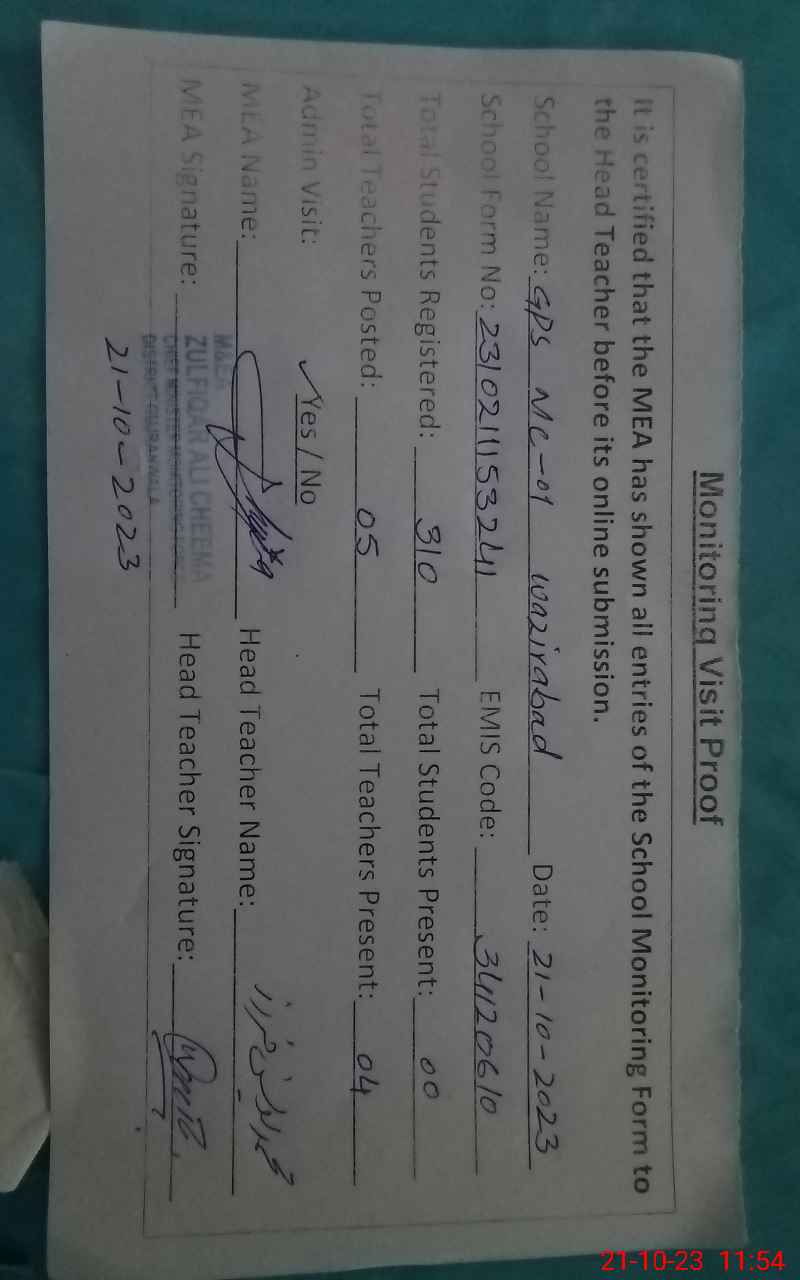 Monitoring Visit Proof
It is certified that the MEA has shown all entries of the School Monitoring Form to
the Head Teacher before its online submission.
School Name: GPS Mc-01 wazirabad Date: 21-10-2023
School Form No: 23102111153241 EMIS Code: 34120610
Total Students Registered: 310 Total Students Present: 00
Total Teachers Posted: 05 Total Teachers Present: 04
Admin Visit: ✓Yes / No
MEA Name: Head Teacher Name: محمد
M&EA
ZULFIQAR ALI CHEEMA
MEA Signature: Head Teacher Signature:
DISTRICT GUJRANWALA
21-10-2023
21-10-23 11:54